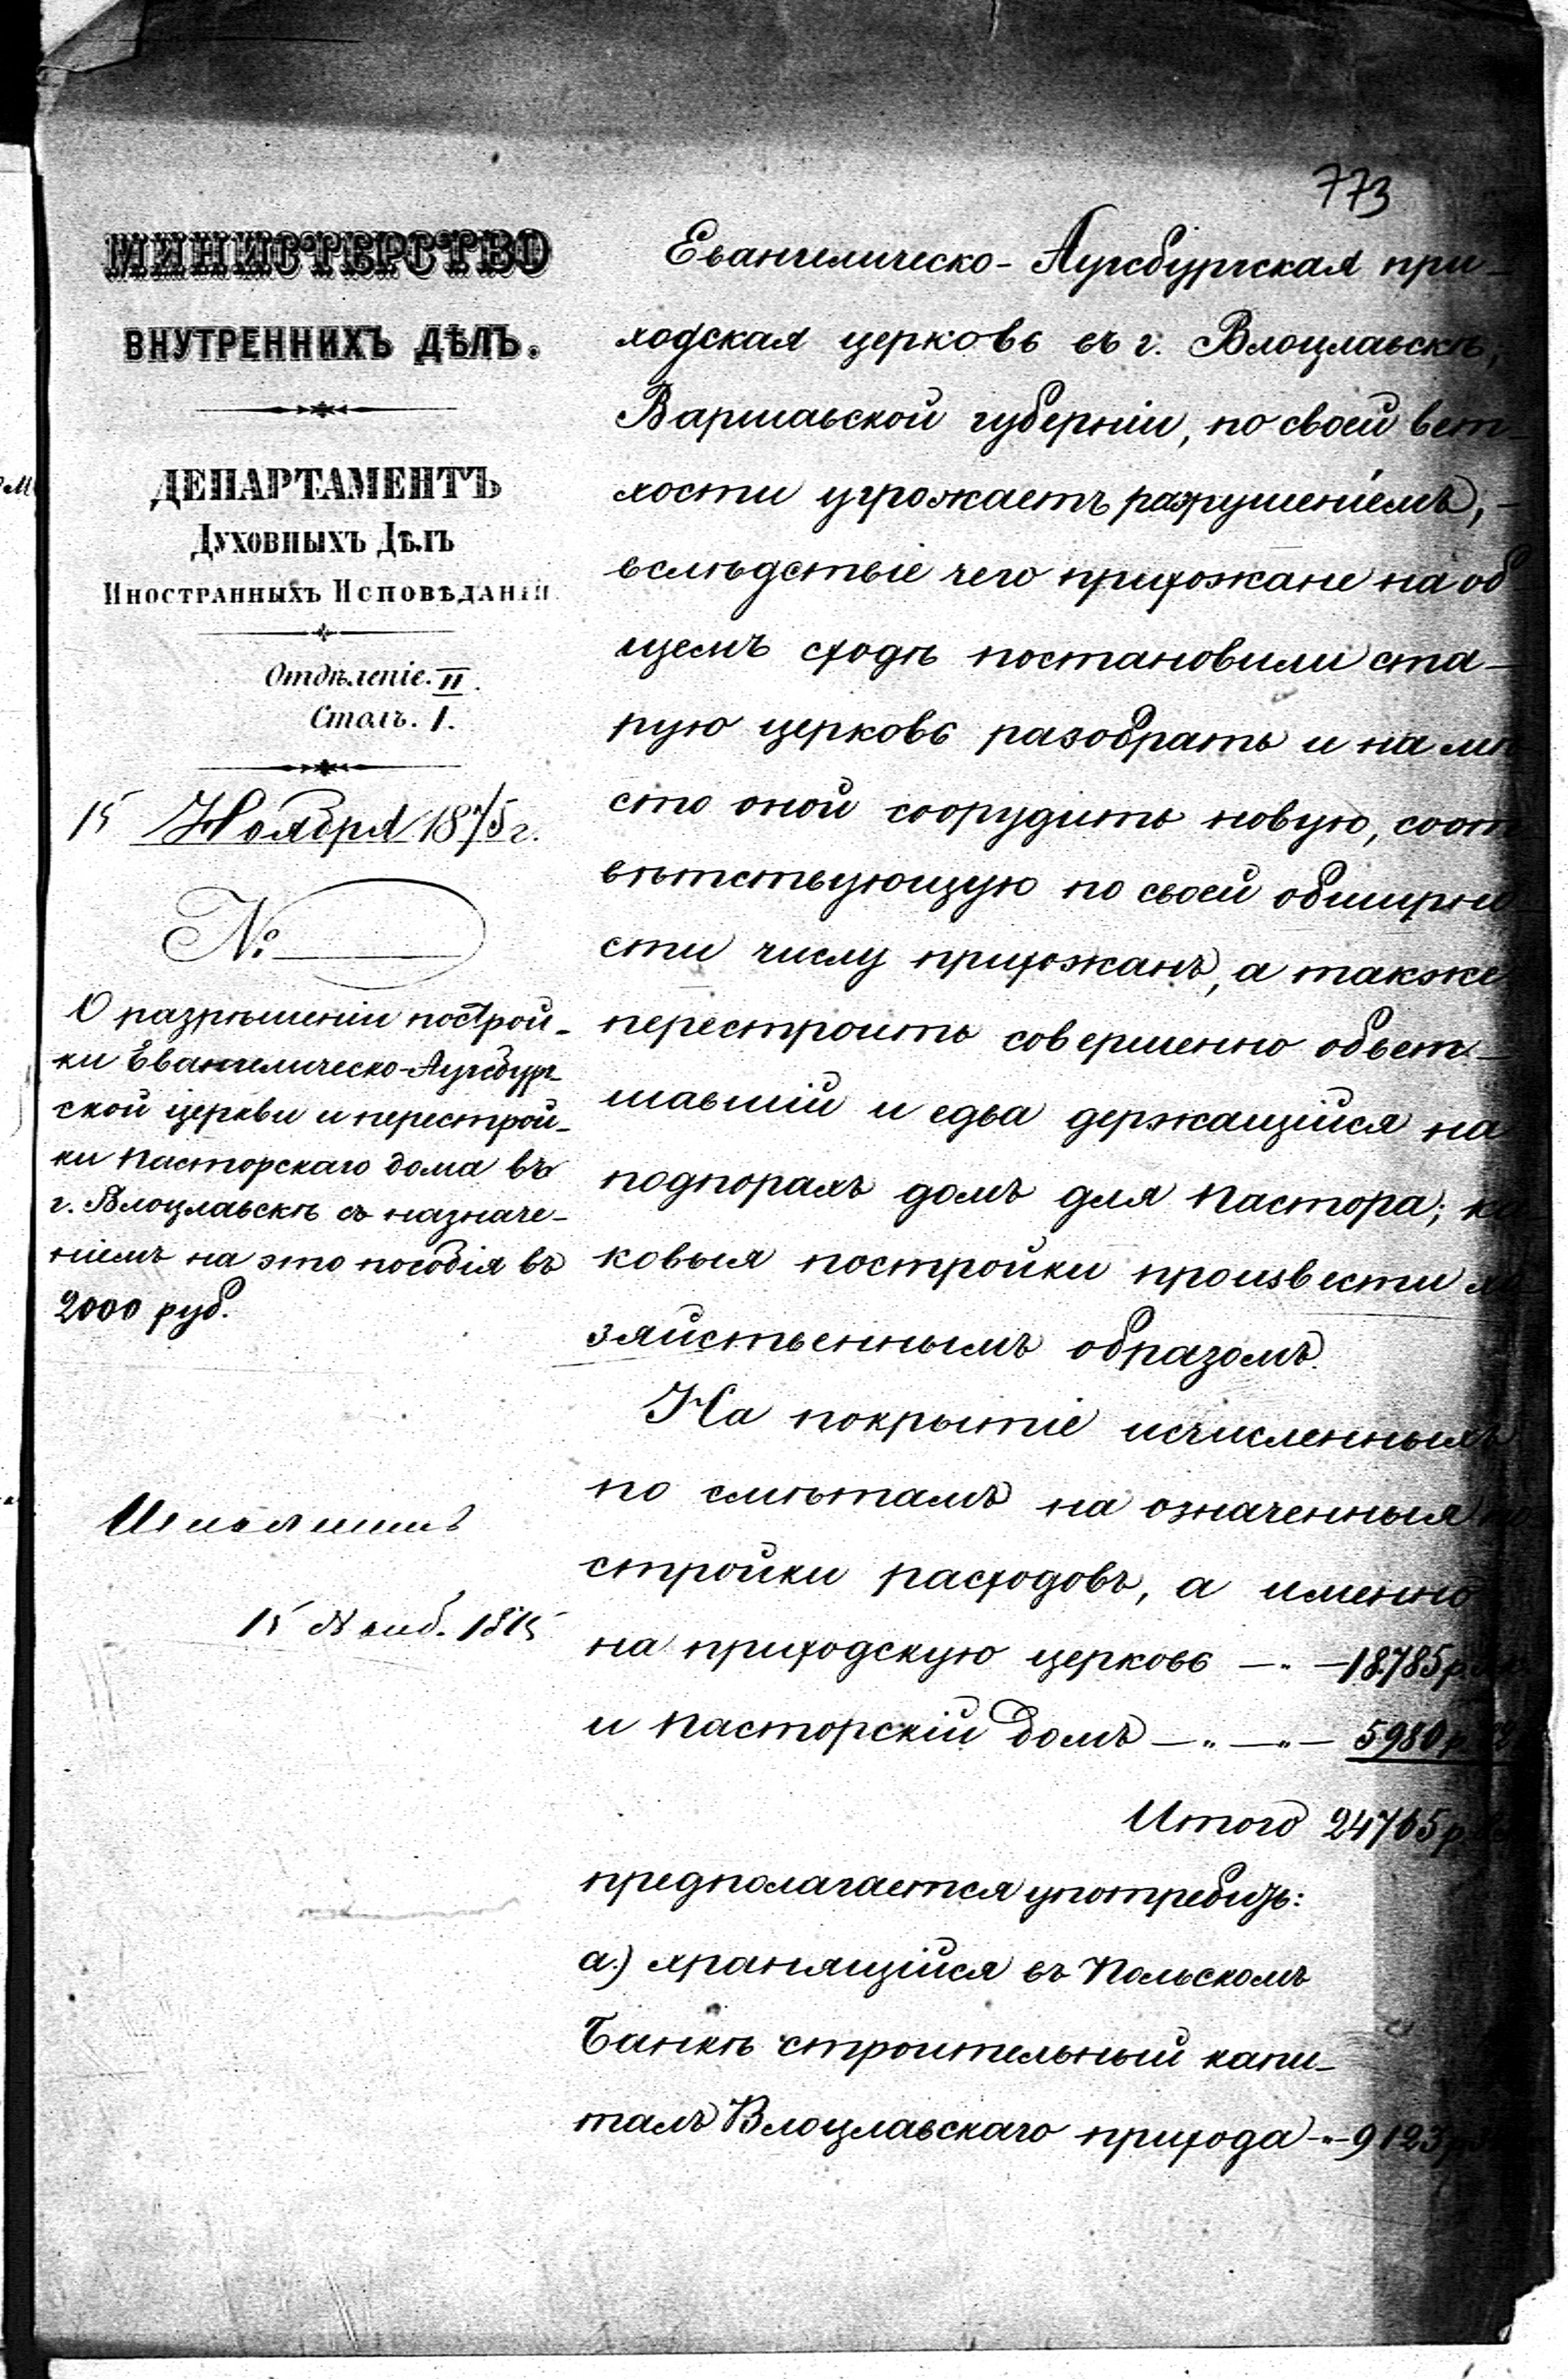 773
МИНИСТЕРСТВО
ВНУТРЕННИХЪ ДѢЛЪ.
ДЕПАРТАМЕНТЪ
ДУХОВНЫХЪ ДѢЛЪ
ИНОСТРАННЫХЪ ИСПОВѢДАНІЙ
Отдѣленіе. II.
Столъ. I.
15 Ноября 1875 г.
№
О разрѣшеніи построй-
ки Евангелическо-Аугсбург-
ской церкви и перестрой-
ки пасторскаго дома въ
г. Влоцлавскѣ съ назначе-
ніемъ на это пособія въ
2000 руб.
15 1875
Евангелическо-Аугсбургская при-
ходская церковь въ г. Влоцлавскѣ,
Варшавской губерніи, по своей вет-
хости угрожаетъ разрушеніемъ, -
вслѣдствіе чего прихожане на об
щемъ сходѣ постановили ста-
рую церковь разобрать и на мѣ
сто оной соорудить новую, соот
вѣтствующую по своей обширно
сти числу прихожанъ, а также
перестроить совершенно обвет-
шавшій и едва держащійся на
подпорахъ домъ для пастора; ка
ковыя постройки произвести хо
зяйственнымъ образомъ.
На покрытіе исчисленныхъ
по смѣтамъ на означенныя по
стройки расходовъ, а именно
на приходскую церковь —„— 18785 р.
и пасторскій домъ —„—„— 5980 р.
Итого 24765 р.
предполагается употребить:
а.) хранящійся въ Польскомъ
Банкѣ строительный капи-
талъ Влоцлавскаго прихода -„- 9123 р.